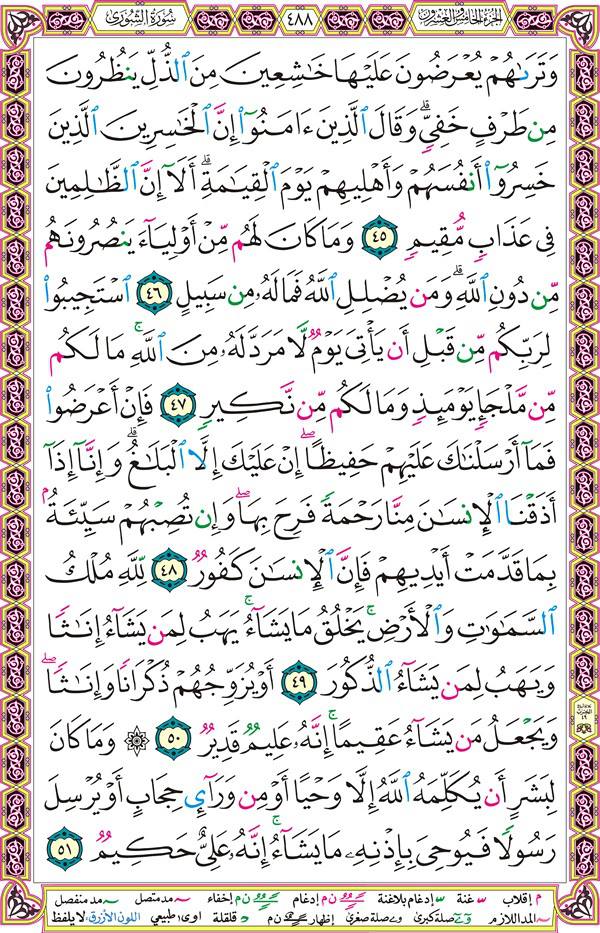 سُورَةُ الشُّورَىٰ
٤٨٨
الجُزءُ الخَامِسُ وَالعِشْرُون
وَتَرَىٰهُمْ يُعْرَضُونَ عَلَيْهَا خَٰشِعِينَ مِنَ ٱلذُّلِّ يَنظُرُونَ
مِن طَرْفٍ خَفِيٍّۗ وَقَالَ ٱلَّذِينَ ءَامَنُوٓا۟ إِنَّ ٱلْخَٰسِرِينَ ٱلَّذِينَ
خَسِرُوٓا۟ أَنفُسَهُمْ وَأَهْلِيهِمْ يَوْمَ ٱلْقِيَٰمَةِۗ أَلَآ إِنَّ ٱلظَّٰلِمِينَ
فِى عَذَابٍ مُّقِيمٍ ٤٥ وَمَا كَانَ لَهُم مِّنْ أَوْلِيَآءَ يَنصُرُونَهُم
مِّن دُونِ ٱللَّهِۗ وَمَن يُضْلِلِ ٱللَّهُ فَمَا لَهُۥ مِن سَبِيلٍ ٤٦ ٱسْتَجِيبُوا۟
لِرَبِّكُم مِّن قَبْلِ أَن يَأْتِىَ يَوْمٌ لَّا مَرَدَّ لَهُۥ مِنَ ٱللَّهِۚ مَا لَكُم
مِّن مَّلْجَإٍ يَوْمَئِذٍ وَمَا لَكُم مِّن نَّكِيرٍ ٤٧ فَإِنْ أَعْرَضُوا۟
فَمَآ أَرْسَلْنَٰكَ عَلَيْهِمْ حَفِيظًاۖ إِنْ عَلَيْكَ إِلَّا ٱلْبَلَٰغُۗ وَإِنَّآ إِذَآ
أَذَقْنَا ٱلْإِنسَٰنَ مِنَّا رَحْمَةً فَرِحَ بِهَاۖ وَإِن تُصِبْهُمْ سَيِّئَةٌۢ
بِمَا قَدَّمَتْ أَيْدِيهِمْ فَإِنَّ ٱلْإِنسَٰنَ كَفُورٌ ٤٨ لِّلَّهِ مُلْكُ
ٱلسَّمَٰوَٰتِ وَٱلْأَرْضِۚ يَخْلُقُ مَا يَشَآءُۚ يَهَبُ لِمَن يَشَآءُ إِنَٰثًا
وَيَهَبُ لِمَن يَشَآءُ ٱلذُّكُورَ ٤٩ أَوْ يُزَوِّجُهُمْ ذُكْرَانًا وَإِنَٰثًاۖ
وَيَجْعَلُ مَن يَشَآءُ عَقِيمًاۚ إِنَّهُۥ عَلِيمٌ قَدِيرٌ ٥٠ ۞ وَمَا كَانَ
لِبَشَرٍ أَن يُكَلِّمَهُ ٱللَّهُ إِلَّا وَحْيًا أَوْ مِن وَرَآئِ حِجَابٍ أَوْ يُرْسِلَ
رَسُولًا فَيُوحِىَ بِإِذْنِهِۦ مَا يَشَآءُۚ إِنَّهُۥ عَلِىٌّ حَكِيمٌ ٥١
م إقلاب غنة إدغام بلاغنة ن م إدغام ن م إخفاء مد متصل مد منفصل
المد اللازم صلة كبرى صلة صغرى إظهار ن م قلقلة اوى طبيعي اللون الأزرق لا يلفظ